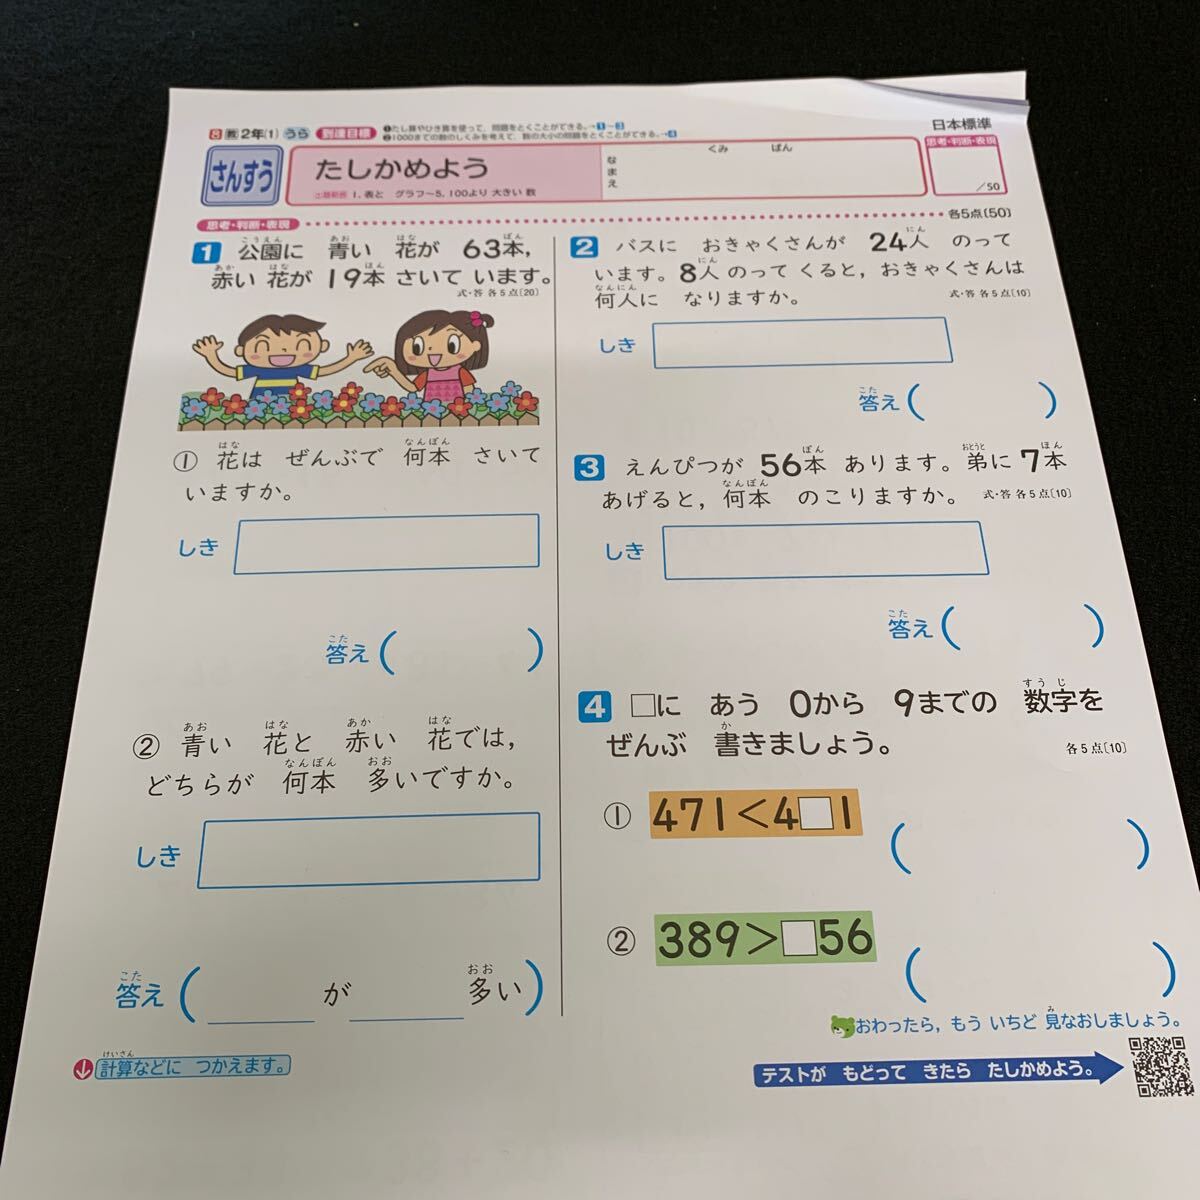 8 教 2年(1) うら 到達目標
❶たし算やひき算を使って,問題をとくことができる。→1~3
❷1000までの数のしくみを考えて,数の大小の問題をとくことができる。→4
日本標準
さんすう
たしかめよう
出題範囲 1.表と グラフ~5.100より 大きい 数
くみ ばん
なまえ
思考・判断・表現
/50
思考・判断・表現
各5点(50)
1 公園に 青い 花が 63本,
赤い 花が 19本 さいて います。
式・答 各5点(20)
① 花は ぜんぶで 何本 さいて
いますか。
しき
答え( )
② 青い 花と 赤い 花では,
どちらが 何本 多いですか。
しき
答え( が 多い)
計算などに つかえます。
2 バスに おきゃくさんが 24人 のって
います。8人 のって くると,おきゃくさんは
何人に なりますか。
式・答 各5点(10)
しき
答え( )
3 えんぴつが 56本 あります。弟に 7本
あげると,何本 のこりますか。
式・答 各5点(10)
しき
答え( )
4 □に あう 0から 9までの 数字を
ぜんぶ 書きましょう。
各5点(10)
① 471<4□1 ( )
② 389>□56 ( )
おわったら,もう いちど 見なおしましょう。
テストが もどって きたら たしかめよう。